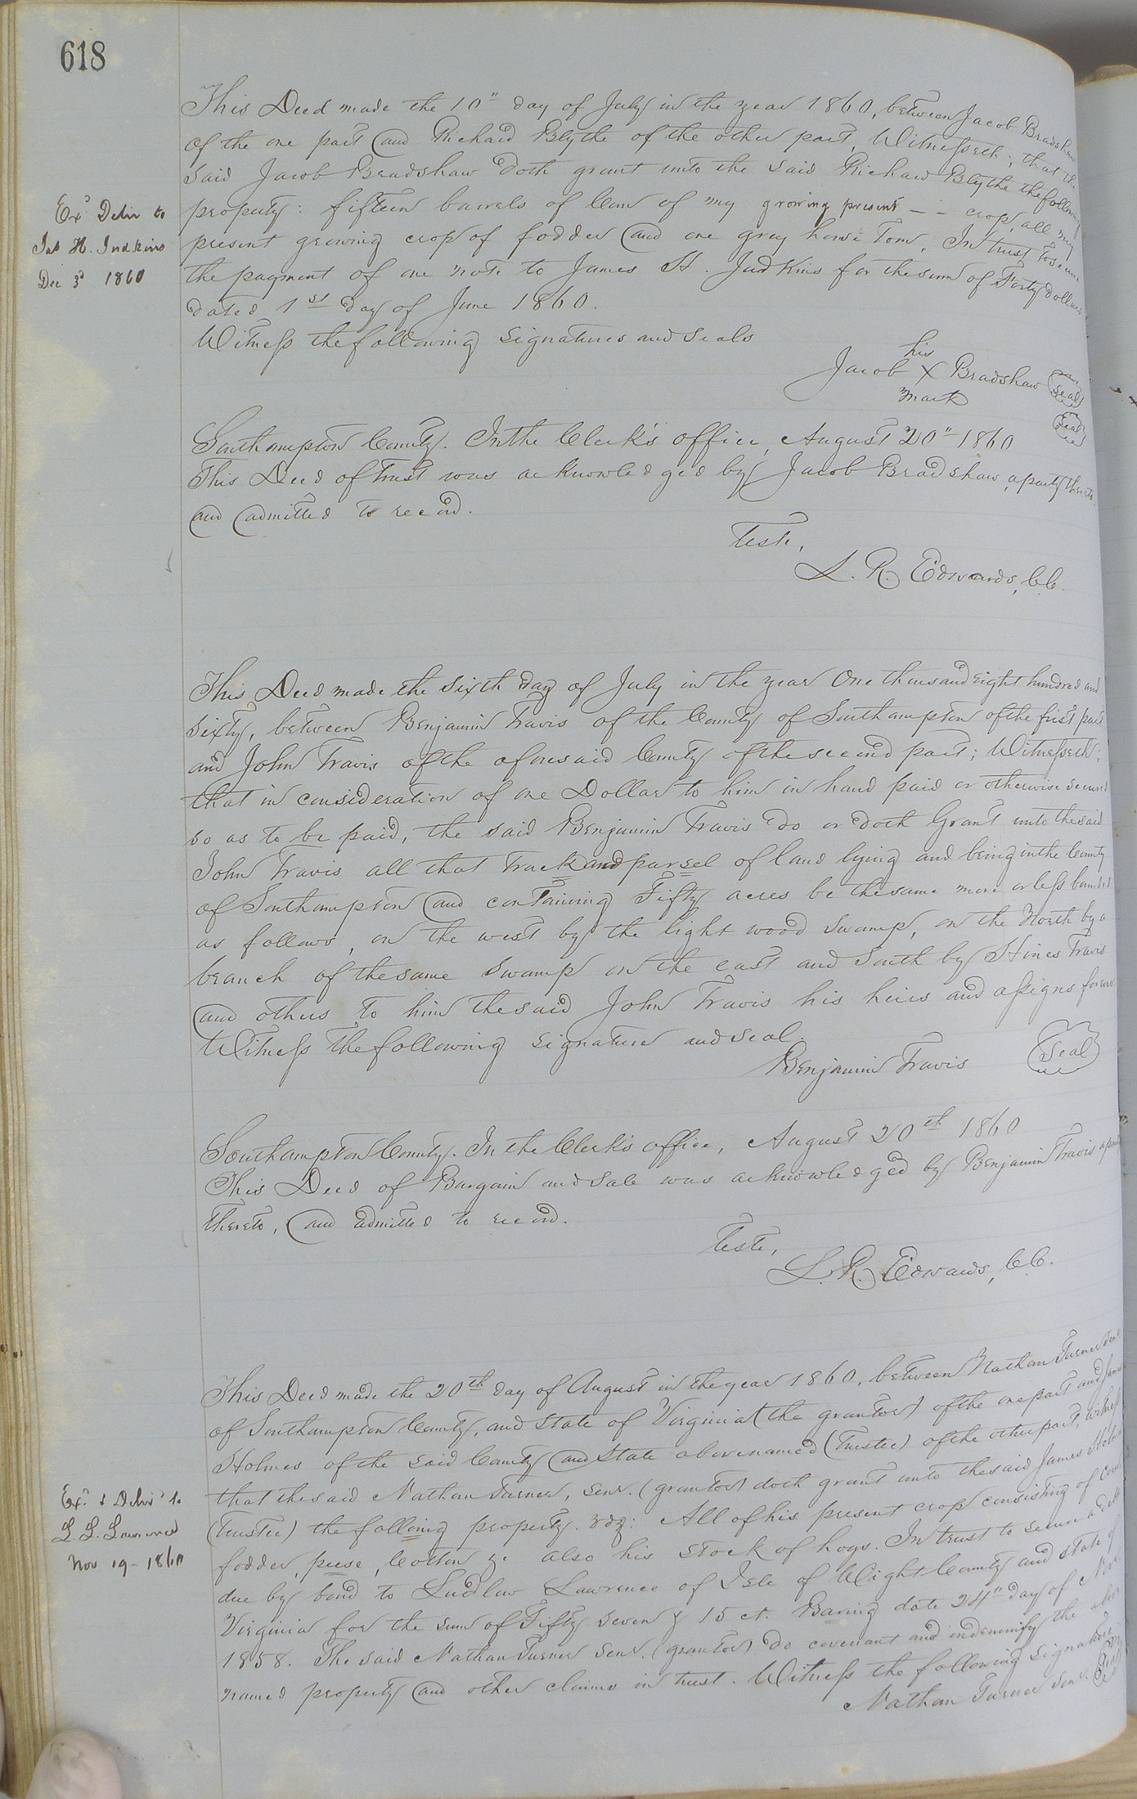 618
This Deed made the 10" day of July in the year 1860, between Jacob Bradshaw
of the one part and Richard Blythe of the other part, Witnesseth; that the
Said Jacob Bradshaw doth grant unto the said Richard Blythe the following
property: fifteen barrels of Corn of my growing present - - crop, all my
present growing crop of fodder and one gray horse Tom, In trust to secure
the payment of one note to James H. Judkins for the sum of Forty dollars
dated 1st day of June 1860.
Witness the following signatures and seals
Exd Delivd to
Jas H. Judkins
Dec 3d 1860
his
Jacob X Bradshaw Seal
mark
Seal
Southampton County. In the Clerk's office, August 20" 1860
This Deed of Trust was acknowledged by Jacob Bradshaw, a party thereto
and admitted to record.
Teste,
L. R. Edwards, C.C.
This Deed made the sixth day of July in the year One thousand eight hundred and
sixty, between Benjamin Travis of the County of Southampton of the first part
and John Travis of the aforesaid County of the second part; Witnesseth:
that in consideration of one Dollar to him in hand paid or otherwise secured
so as to be paid, the said Benjamin Travis do or doth Grant unto the said
John Travis all that Track and parsel of land lying and being in the County
of Southampton and containing Fifty acres be the same more or less bounded
as follows, on the west by the light wood Swamp, on the North by a
branch of the same Swamp on the east and South by Hines Travis
and others to him the said John Travis his heirs and assigns forever
Witness the following signature and seal.
Benjamin Travis Seal
Southampton County. In the Clerk's office, August 20th 1860
This Deed of Bargain and Sale was acknowledged by Benjamin Travis a party
thereto, and admitted to record.
Teste,
L. R. Edwards, C.C.
This Deed made the 20th day of August in the year 1860, between Nathan Turner Senr
of Southampton County, and State of Virginia (the grantor) of the one part and James
Holmes of the said County and State above named (Trustee) of the other part, witness
that the said Nathan Turner, Senr. (grantor) doth grant unto the said James Holmes
(Trustee) the folloing property. viz: All of his present crop consisting of Corn
fodder, pease, Cotton &c also his stock of hogs. In trust to secure a debt
due by bond to Ludlow Lawrence of Isle of Wight County and state of
Virginia for the sum of Fifty seven & 15 ct. Baring date 24th day of
1858. The said Nathan Turner Senr. (grantor) do covenant and indemnify the above
named property and other claims in trust. Witness the following signature
Nathan Turner Senr. Seal
Exd & Delivd to
L. L. Lawrence
Nov 19 - 1860